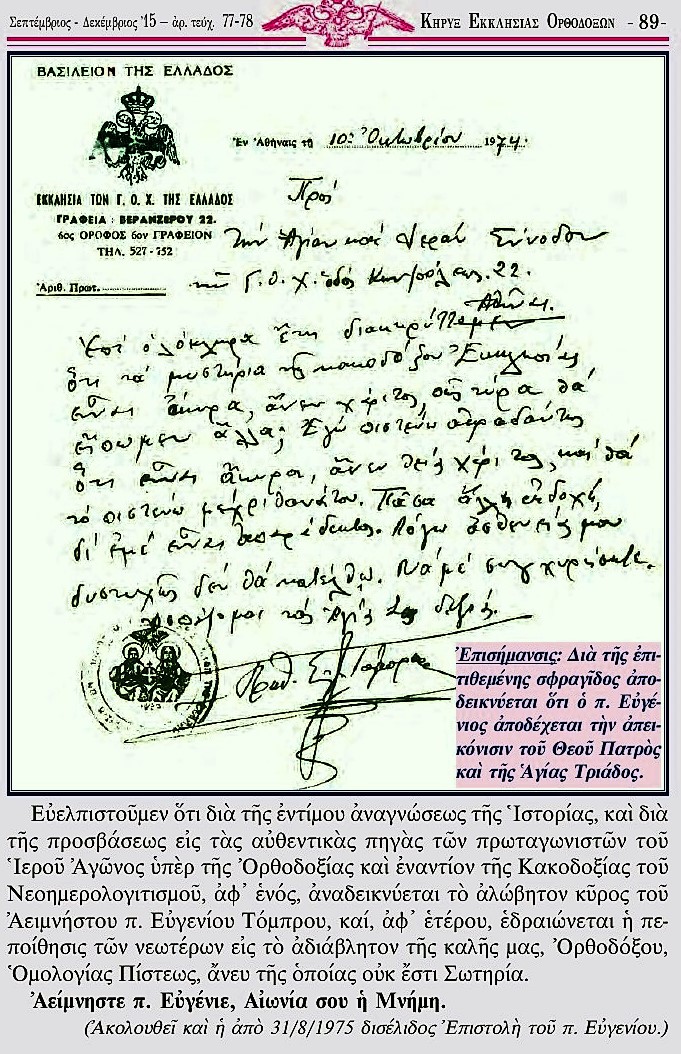 Σεπτέμβριος - Δεκέμβριος '15 – ἀρ. τεύχ. 77-78
ΚΗΡΥΞ ΕΚΚΛΗΣΙΑΣ ΟΡΘΟΔΟΞΩΝ - 89-
ΒΑΣΙΛΕΙΟΝ ΤΗΣ ΕΛΛΑΔΟΣ
Ἐν Ἀθήναις τῇ 10ῃ Ὀκτωβρίου 1974
ΕΚΚΛΗΣΙΑ ΤΩΝ Γ. Ο. Χ. ΤΗΣ ΕΛΛΑΔΟΣ
ΓΡΑΦΕΙΑ : ΒΕΡΑΝΖΕΡΟΥ 22.
6ος ΟΡΟΦΟΣ 6ον ΓΡΑΦΕΙΟΝ
ΤΗΛ. 527 - 752
Ἀριθ. Πρωτ.
Πρός
Τήν Ἁγίαν καί Ἱεράν Σύνοδον
τῶν Γ. Ο. Χ. ὁδός Κανιγγος 22.
Ἀθήνας.
Ἐπί ὁλόκληρα ἔτη διακηρύττομεν
ὅτι τά μυστήρια τῆς κακοδόξου Ἐκκλησίας
εἶναι ἄκυρα, ἄνευ χάριτος, πῶς τώρα θά
εἴπωμεν ἄλλα; Ἐγώ πιστεύω ἀκραδάντως
ὅτι εἶναι ἄκυρα, ἄνευ θείας χάριτος, καί θά
τό πιστεύω μέχρι θανάτου. Πᾶσα ἄλλη ἐκδοχή,
δι' ἐμέ εἶναι ἀπαράδεκτος. Λόγῳ ἀσθενείας μου
δυστυχῶς δέν θά κατέλθω. Νά μέ συγχωρήσετε.
Ἀσπάζομαι τάς Ἁγίας Σας δεξιάς.
Ἐπισήμανσις: Διὰ τῆς ἐπι-
τιθεμένης σφραγῖδος ἀπο-
δεικνύεται ὅτι ὁ π. Εὐγέ-
νιος ἀποδέχεται τὴν ἀπει-
κόνισιν τοῦ Θεοῦ Πατρὸς
καὶ τῆς Ἁγίας Τριάδος.
Εὐελπιστοῦμεν ὅτι διὰ τῆς ἐντίμου ἀναγνώσεως τῆς Ἱστορίας, καὶ διὰ
τῆς προσβάσεως εἰς τὰς αὐθεντικὰς πηγὰς τῶν πρωταγωνιστῶν τοῦ
Ἱεροῦ Ἀγῶνος ὑπὲρ τῆς Ὀρθοδοξίας καὶ ἐναντίον τῆς Κακοδοξίας τοῦ
Νεοημερολογιτισμοῦ, ἀφ' ἑνός, ἀναδεικνύεται τὸ ἀλώβητον κῦρος τοῦ
Ἀειμνήστου π. Εὐγενίου Τόμπρου, καί, ἀφ' ἑτέρου, ἑδραιώνεται ἡ πε-
ποίθησις τῶν νεωτέρων εἰς τὸ ἀδιάβλητον τῆς καλῆς μας, Ὀρθοδόξου,
Ὁμολογίας Πίστεως, ἄνευ τῆς ὁποίας οὐκ ἔστι Σωτηρία.
Ἀείμνηστε π. Εὐγένιε, Αἰωνία σου ἡ Μνήμη.
(Ἀκολουθεῖ καὶ ἡ ἀπὸ 31/8/1975 δισέλιδος Ἐπιστολὴ τοῦ π. Εὐγενίου.)